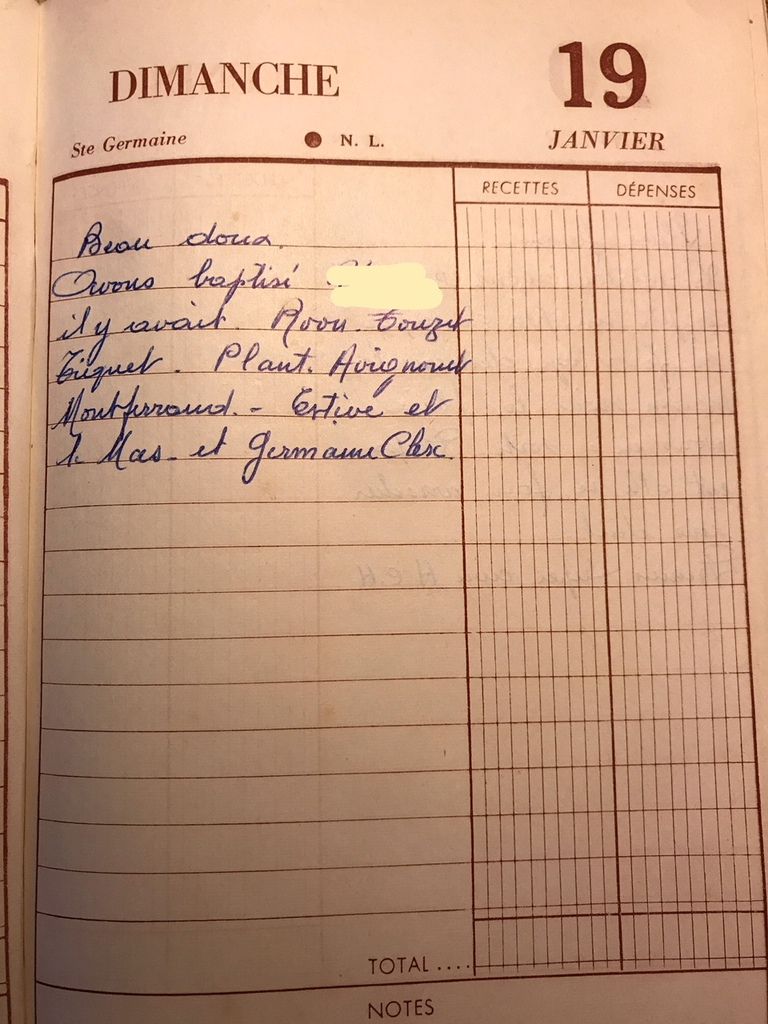 DIMANCHE 19
Ste Germaine N. L. JANVIER
RECETTES DÉPENSES
Beau doux.
Avons baptisé
il y avait. Touzet
. Plant. Avignonet
Montferrand. - Estive et
Mas - et Germaine Clerc.
TOTAL ....
NOTES